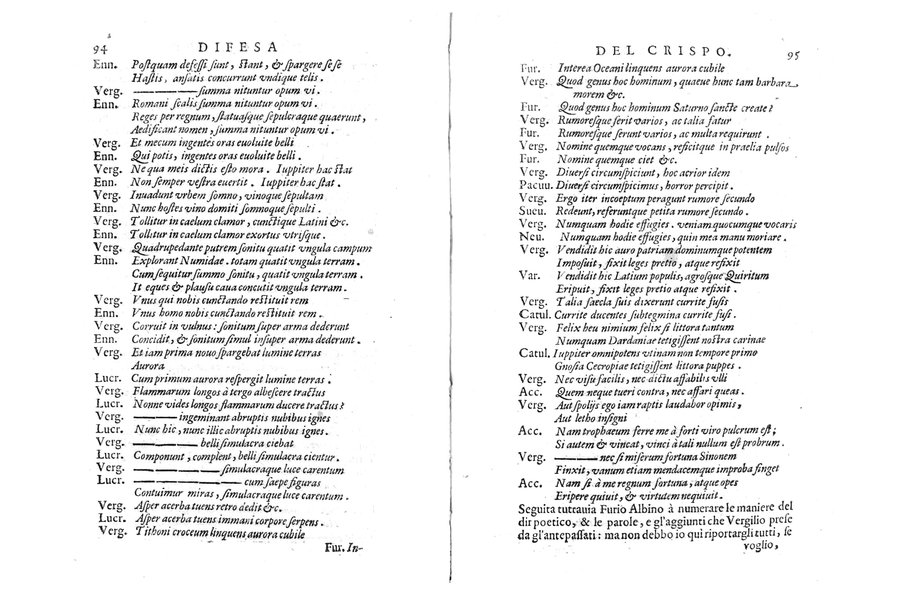 94 DIFESA
Enn. Poſtquam defeſſi ſunt, ſtant, & ſpargere ſeſe
Haſtis, anſatis concurrunt vndique telis.
Verg. ———— ſumma nituntur opum vi.
Enn. Romani ſcalis ſumma nituntur opum vi.
Reges per regnum, ſtatuaſque ſepulcraque quaerunt,
Aedificant nomen, ſumma nituntur opum vi.
Verg. Et mecum ingentes oras euoluite belli
Enn. Qui potis, ingentes oras euoluite belli.
Verg. Ne qua meis dictis eſto mora. Iuppiter hac ſtat
Enn. Non ſemper veſtra euertit. Iuppiter hac ſtat.
Verg. Inuadunt vrbem ſomno, vinoque ſepultam
Enn. Nunc hoſtes vino domiti ſomnoque ſepulti.
Verg. Tollitur in caelum clamor, cunctique Latini &c.
Enn. Tollitur in caelum clamor exortus vtriſque.
Verg. Quadrupedante putrem ſonitu quatit vngula campum
Enn. Explorant Numidae. totam quatit vngula terram.
Cum ſequitur ſummo ſonitu, quatit vngula terram.
It eques & plauſu caua concutit vngula terram.
Verg. Vnus qui nobis cunctando reſtituit rem
Enn. Vnus homo nobis cunctando reſtituit rem.
Verg. Corruit in vulnus: ſonitum ſuper arma dederunt
Enn. Concidit, & ſonitum ſimul inſuper arma dederunt.
Verg. Et iam prima nouo ſpargebat lumine terras
Aurora
Lucr. Cum primum aurora reſpergit lumine terras.
Verg. Flammarum longos à tergo albeſcere tractus
Lucr. Nonne vides longos flammarum ducere tractus?
Verg. ———— ingeminant abruptis nubibus ignes
Lucr. Nunc hic, nunc illic abruptis nubibus ignes.
Verg. ———— belli ſimulacra ciebat
Lucr. Componunt, complent, belli ſimulacra cientur.
Verg. ———— ſimulacraque luce carentum
Lucr. ———— cum ſaepe figuras
Contuimur miras, ſimulacraque luce carentum.
Verg. Aſper acerba tuens retro redit &c.
Lucr. Aſper acerba tuens immani corpore ſerpens.
Verg. Tithoni croceum linquens aurora cubile
Fur. In-
DEL CRISPO. 95
Fur. Interea Oceani linquens aurora cubile
Verg. Quod genus hoc hominum, quaeue hunc tam barbara
morem &c.
Fur. Quod genus hoc hominum Saturno ſancte create?
Verg. Rumoreſque ſerit varios, ac talia fatur
Fur. Rumoreſque ſerunt varios, ac multa requirunt.
Verg. Nomine quemque vocans, reficitque in praelia pulſos
Fur. Nomine quemque ciet &c.
Verg. Diuerſi circumſpiciunt, hoc acrior idem
Pacuu. Diuerſi circumſpicimus, horror percipit.
Verg. Ergo iter incoeptum peragunt rumore ſecundo
Sueu. Redeunt, referuntque petita rumore ſecundo.
Verg. Numquam hodie effugies. veniam quocumque vocaris
Neu. Numquam hodie effugies, quin mea manu moriare.
Verg. Vendidit hic auro patriam dominumque potentem
Impoſuit, fixit leges pretio, atque refixit
Var. Vendidit hic Latium populis, agroſque Quiritum
Eripuit, fixit leges pretio atque refixit.
Verg. Talia ſaecla ſuis dixerunt currite fuſis
Catul. Currite ducentes ſubtegmina currite fuſi.
Verg. Felix heu nimium felix ſi littora tantum
Numquam Dardaniae tetigiſſent noſtra carinae
Catul. Iuppiter omnipotens vtinam non tempore primo
Gnoſia Cecropiae tetigiſſent littora puppes.
Verg. Nec viſu facilis, nec dictu affabilis vlli
Acc. Quem neque tueri contra, nec affari queas.
Verg. Aut ſpolijs ego iam raptis laudabor opimis,
Aut letho inſigni
Acc. Nam trophaeum ferre me à forti viro pulcrum eſt;
Si autem & vincat, vinci à tali nullum eſt probrum.
Verg. ———— nec ſi miſerum fortuna Sinonem
Finxit, vanum etiam mendacemque improba finget
Acc. Nam ſi à me regnum fortuna, atque opes
Eripere quiuit, & virtutem nequiuit.
Seguita tuttauia Furio Albino à numerare le maniere del
dir poetico, & le parole, e gl'aggiunti che Vergilio preſe
da gl'antepaſſati: ma non debbo io quì riportargli tutti, ſe
voglio,